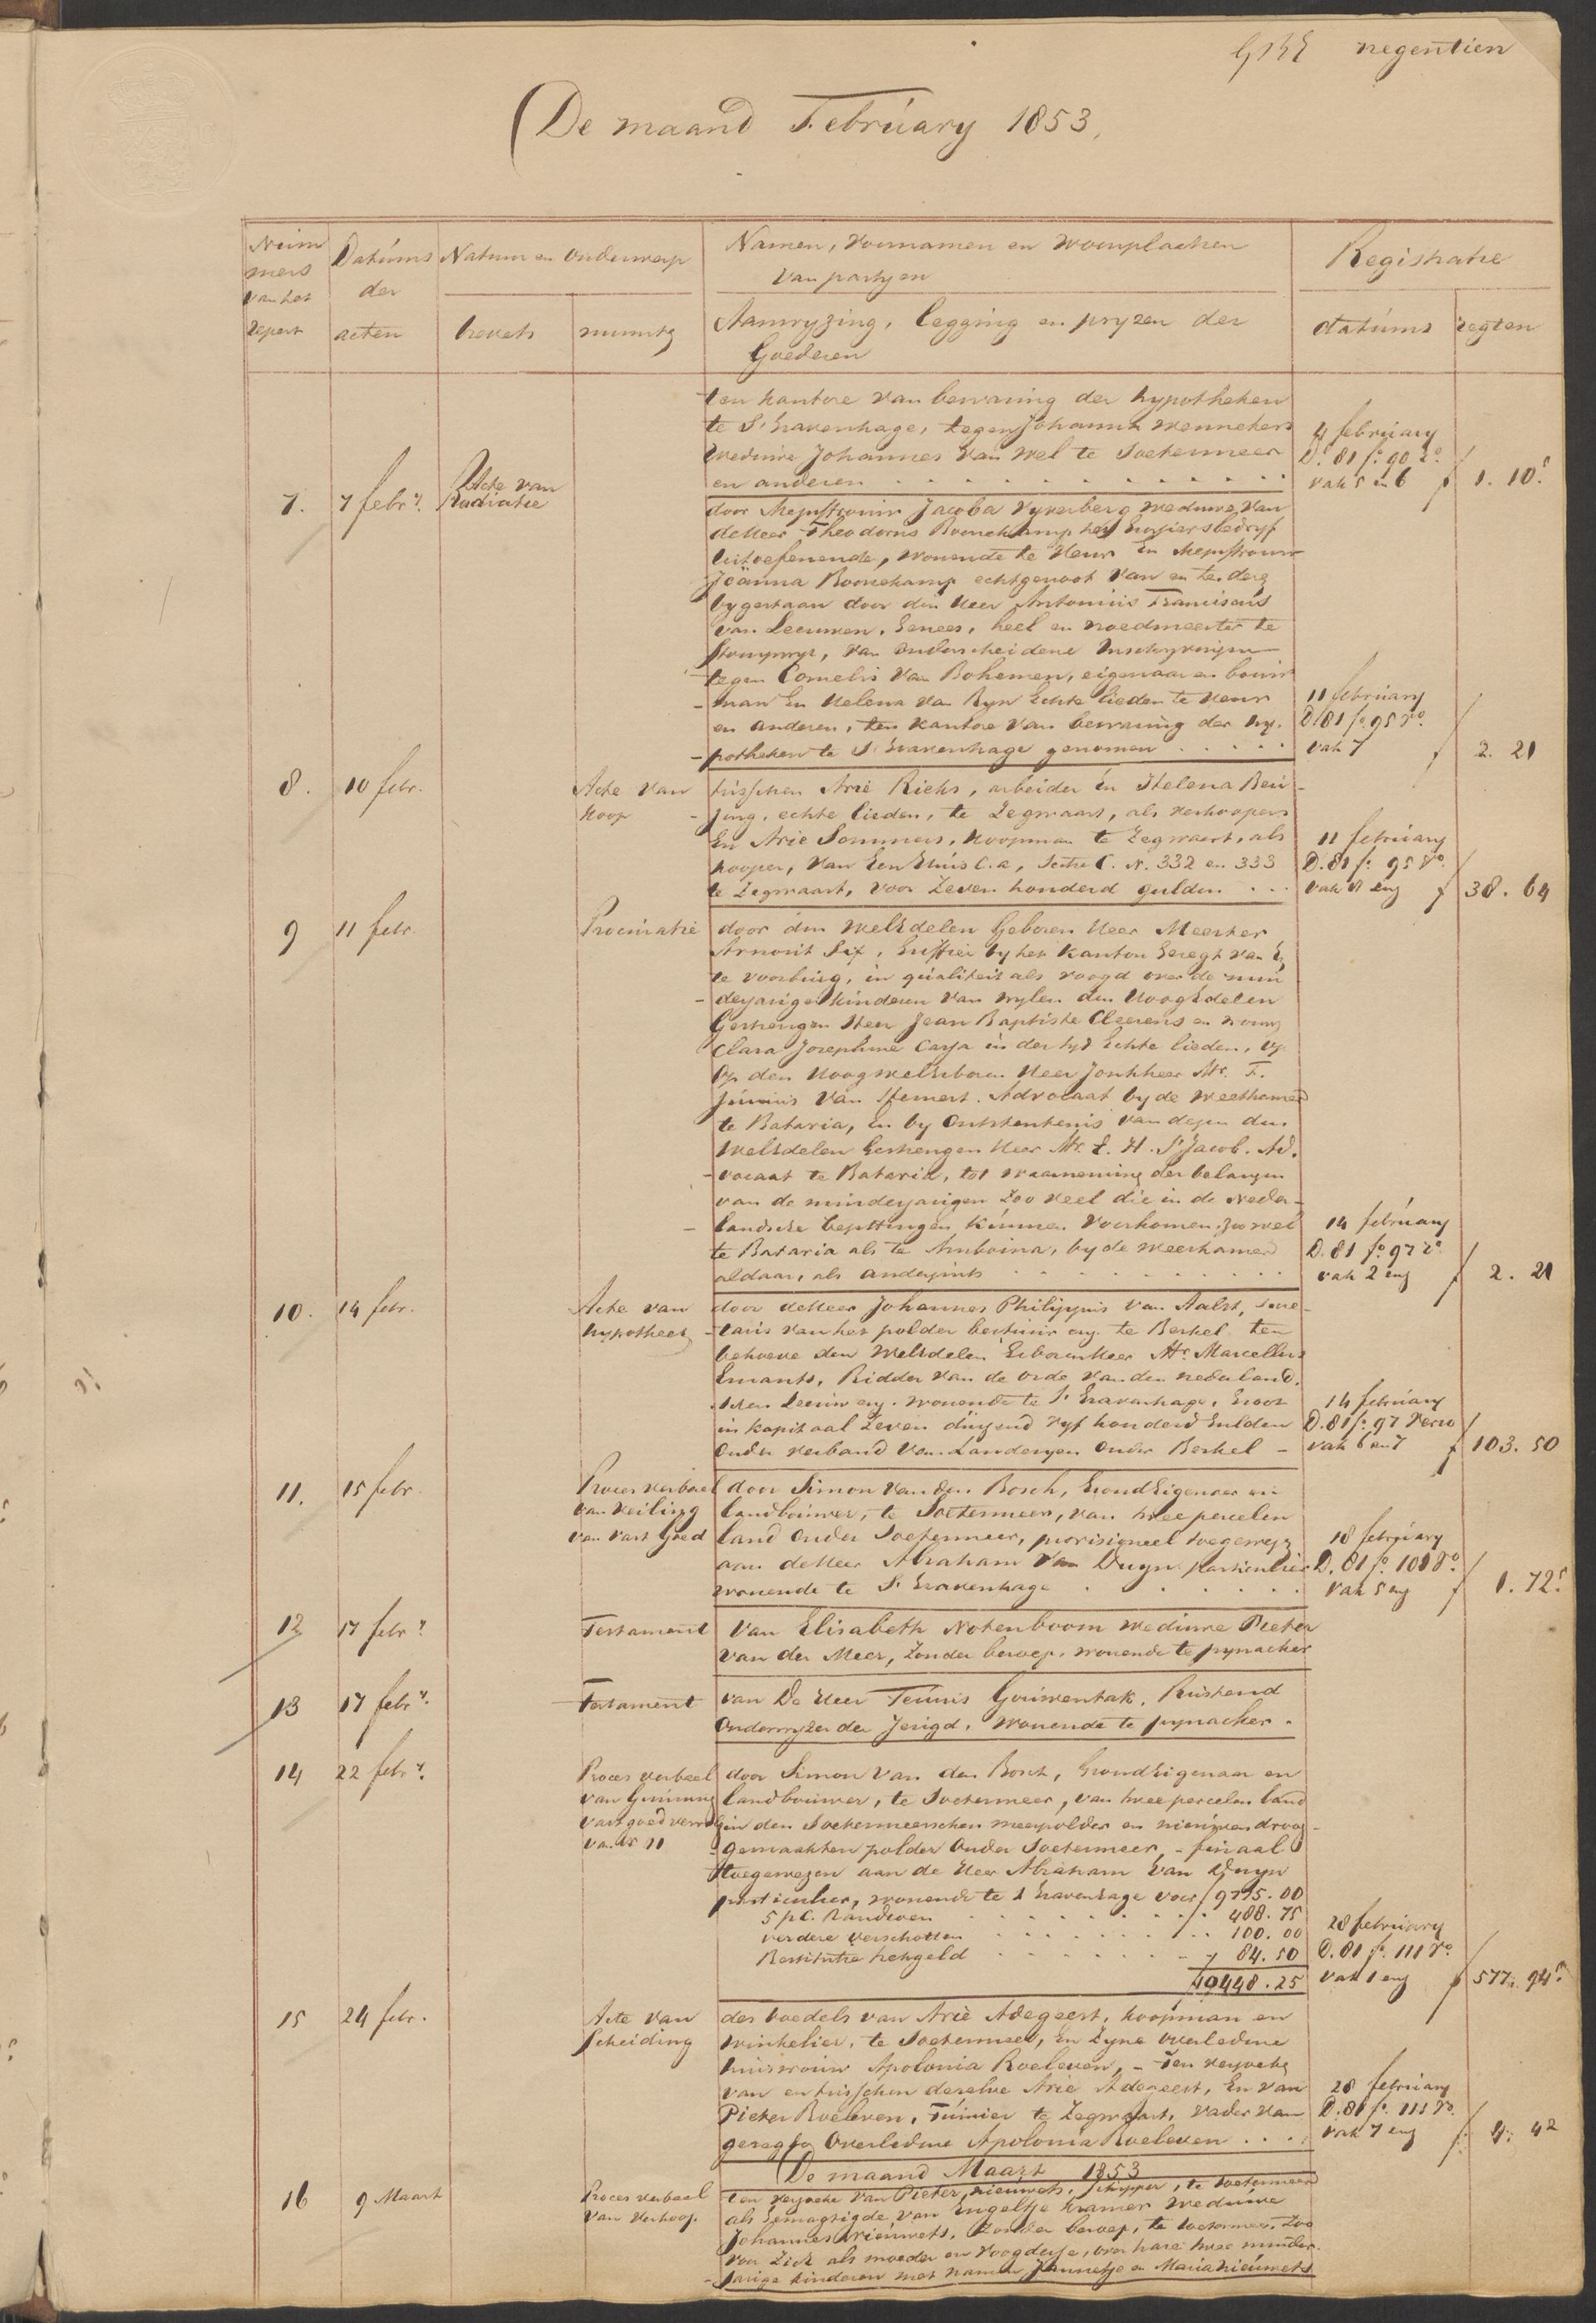 negentien
De maand February 1853.
Num
mers
van het
Repert
Datums
der
acten
Natuur en Onderwerp
brevets
minuts
Namen, voornamen en woonplaatsen
van partyen
Aanwyzing, legging en pryzen der
Goederen
Registratie
datums
regten
ten kantore van bewaring der hypotheken
te S'Gravenhage, tegen Johanna Wennekers
weduwe Johannes van Wel te Soetermeer
en anderen
4 february
D. 81 fo. 90 ro.
vak 5 en 6 f 1. 10.5
7. 7 febry. Acte van
Radiatie
door Mejuffrouw Jacoba Vyverberg weduwe van
de Heer Theodorus Boonekamp het
uitoefenende, wonende te Veur En Mejuffrouw
Joänna Boonekamp echtgenoot van en te dezen
bygestaan door den Heer Antonius Franciscus
van Leeuwen, Genees, heel en vroedmeester te
Stompwyk, van onderscheidene Inschryvingen
tegen Cornelis van Bohemen, eigenaar en bouw
-man En Helena van Ryn Echte lieden te Veur
en anderen, ten kantore van bewaring der hy-
-potheken te S Gravenhage genomen
11 february
D. 81 fo. 95 ro.
vak 7 f 2. 21
8. 10 febr. Acte van
Koop
tusschen Arie Rieks, arbeider En Helena Beu-
-jing, echte lieden, te Zegwaart, als verkoopers
En Arie Sommers, Koopman te Zegwaart, als
kooper, van Een Huis c.a, Sectie C. N. 332 en 333
te Zegwaart, voor Zeven honderd gulden
11 february
D. 81 fo. 95 vo.
vak 8 enz f 38. 64
9 11 febr. Procuratie
door den WelEdelen Geboren Heer Meester
Arnout Six, Griffier by het Kanton Geregt van &
te Voorburg, in qualiteit als voogd over de min
-derjarige kinderen van wylen den HoogEdelen
Gestrengen Heer Jean Baptiste Cleerens en vrouw
Clara Josephine Carja in der tyd Echte lieden, op
Op den HoogWelGeboren Heer Jonkheer Mr. F.
Junius van Hemert. Advocaat by de Weeskamer
te Batavia, en by Ontstentenis van dezen den
WelEdelen Gestrengen Heer Mr. L. H. S'Jacob. Ad.
-vocaat te Batavia, tot waarneming der belangen
van de minderjarigen Zoo veel die in de Neder-
-landsche bezittingen kunnen voorkomen, zoo wel
te Batavia als te Amboina, by de Weeskamer
aldaar, als anderzints
14 february
D. 81 fo 97 ro
vak 2 enz f 2. 21
10. 14 febr. Acte van
hypotheek
door de Heer Johannes Philippus van Aalst, secre-
-taris van het polder bestuur enz. te Berkel ten
behoeve den WelEdelen Geboren Heer Mr. Marcellus
Emants, Ridder van de orde van den nederland.
-schen Leeuw enz. wonende te S' Gravenhage, Groot
in kapitaal Zeven duizend Vyf honderd Gulden
Onder verband van Landeryen Onder Berkel -
14 february
D. 81 fo. 97 verso
vak 6 en 7 f 103. 50
11. 15 febr. Proces verbaal
van Veiling
van vast Goed
door Simon van den Bosch, GrondEigenaar en
landbouwer, te Soetermeer, van twee percelen
land Onder Soetermeer, provisioneel toegewez
aan de Heer Abraham van Duyn particulier
wonende te S' Gravenhage
18 february
D. 81 fo. 101 vo.
vak 5 enz f 1. 72.5
12 17 febry. Testament
van Elisabeth Notenboom weduwe Pieter
van der Meer, Zonder beroep, wonende te Pynacker
13 17 febry. Testament
van De Heer Teunis Gouwentak, Rustend
Onderwyzer der Jeugd, wonende te Pynacker.
14 22 febry. Proces verbaal
van Gunning
vast goed vervolg
van N 11
door Simon van den Bosch, GrondEigenaar en
landbouwer, te Soetermeer, van twee percelen land
in den Soetermeerschen meerpolder en nieuwen droog-
-gemaakten polder Onder Soetermeer, - finaal
toegewezen aan de Heer Abraham van Duyn
particulier, wonende te S Gravenhage voor f 9775.00
5 pC. Randsoen 488.75
verdere verschotten 100.00
Restitutie hekgeld 84.50
10448.25
28 february
D. 81 fo. 111 ro.
vak 1 enz f 577. 94.5
15 24 febr. Acte van
Scheiding
des boedels van Arie Adegeest, koopman en
winkelier, te Soetermeer, En Zyne overledene
huisvrouw Apolonia Roeleven, - Ten verzoeke
van en tusschen dezelve Arie Adegeest, En van
Pieter Roeleven, Tuinier te Zegwaart, vader van
gezegde Overledene Apolonia Roeleven
28 february
D. 81 fo. 111 vo.
vak 7 enz f 4. 42
De maand Maart 1853
16 9 Maart Proces verbaal
van Verkoop.
ten verzoeke van Pieter Nieuwets, schipper, te Soetermeer
als Gemagtigde van Engeltje Kramer Weduwe
Johannes Nieuwets, Zonder beroep, te Soetermeer, Zoo
voor Zich als moeder en Voogdesse, over hare twee minder-
-jarige kinderen met namen Jannetje en Maria Nieuwets